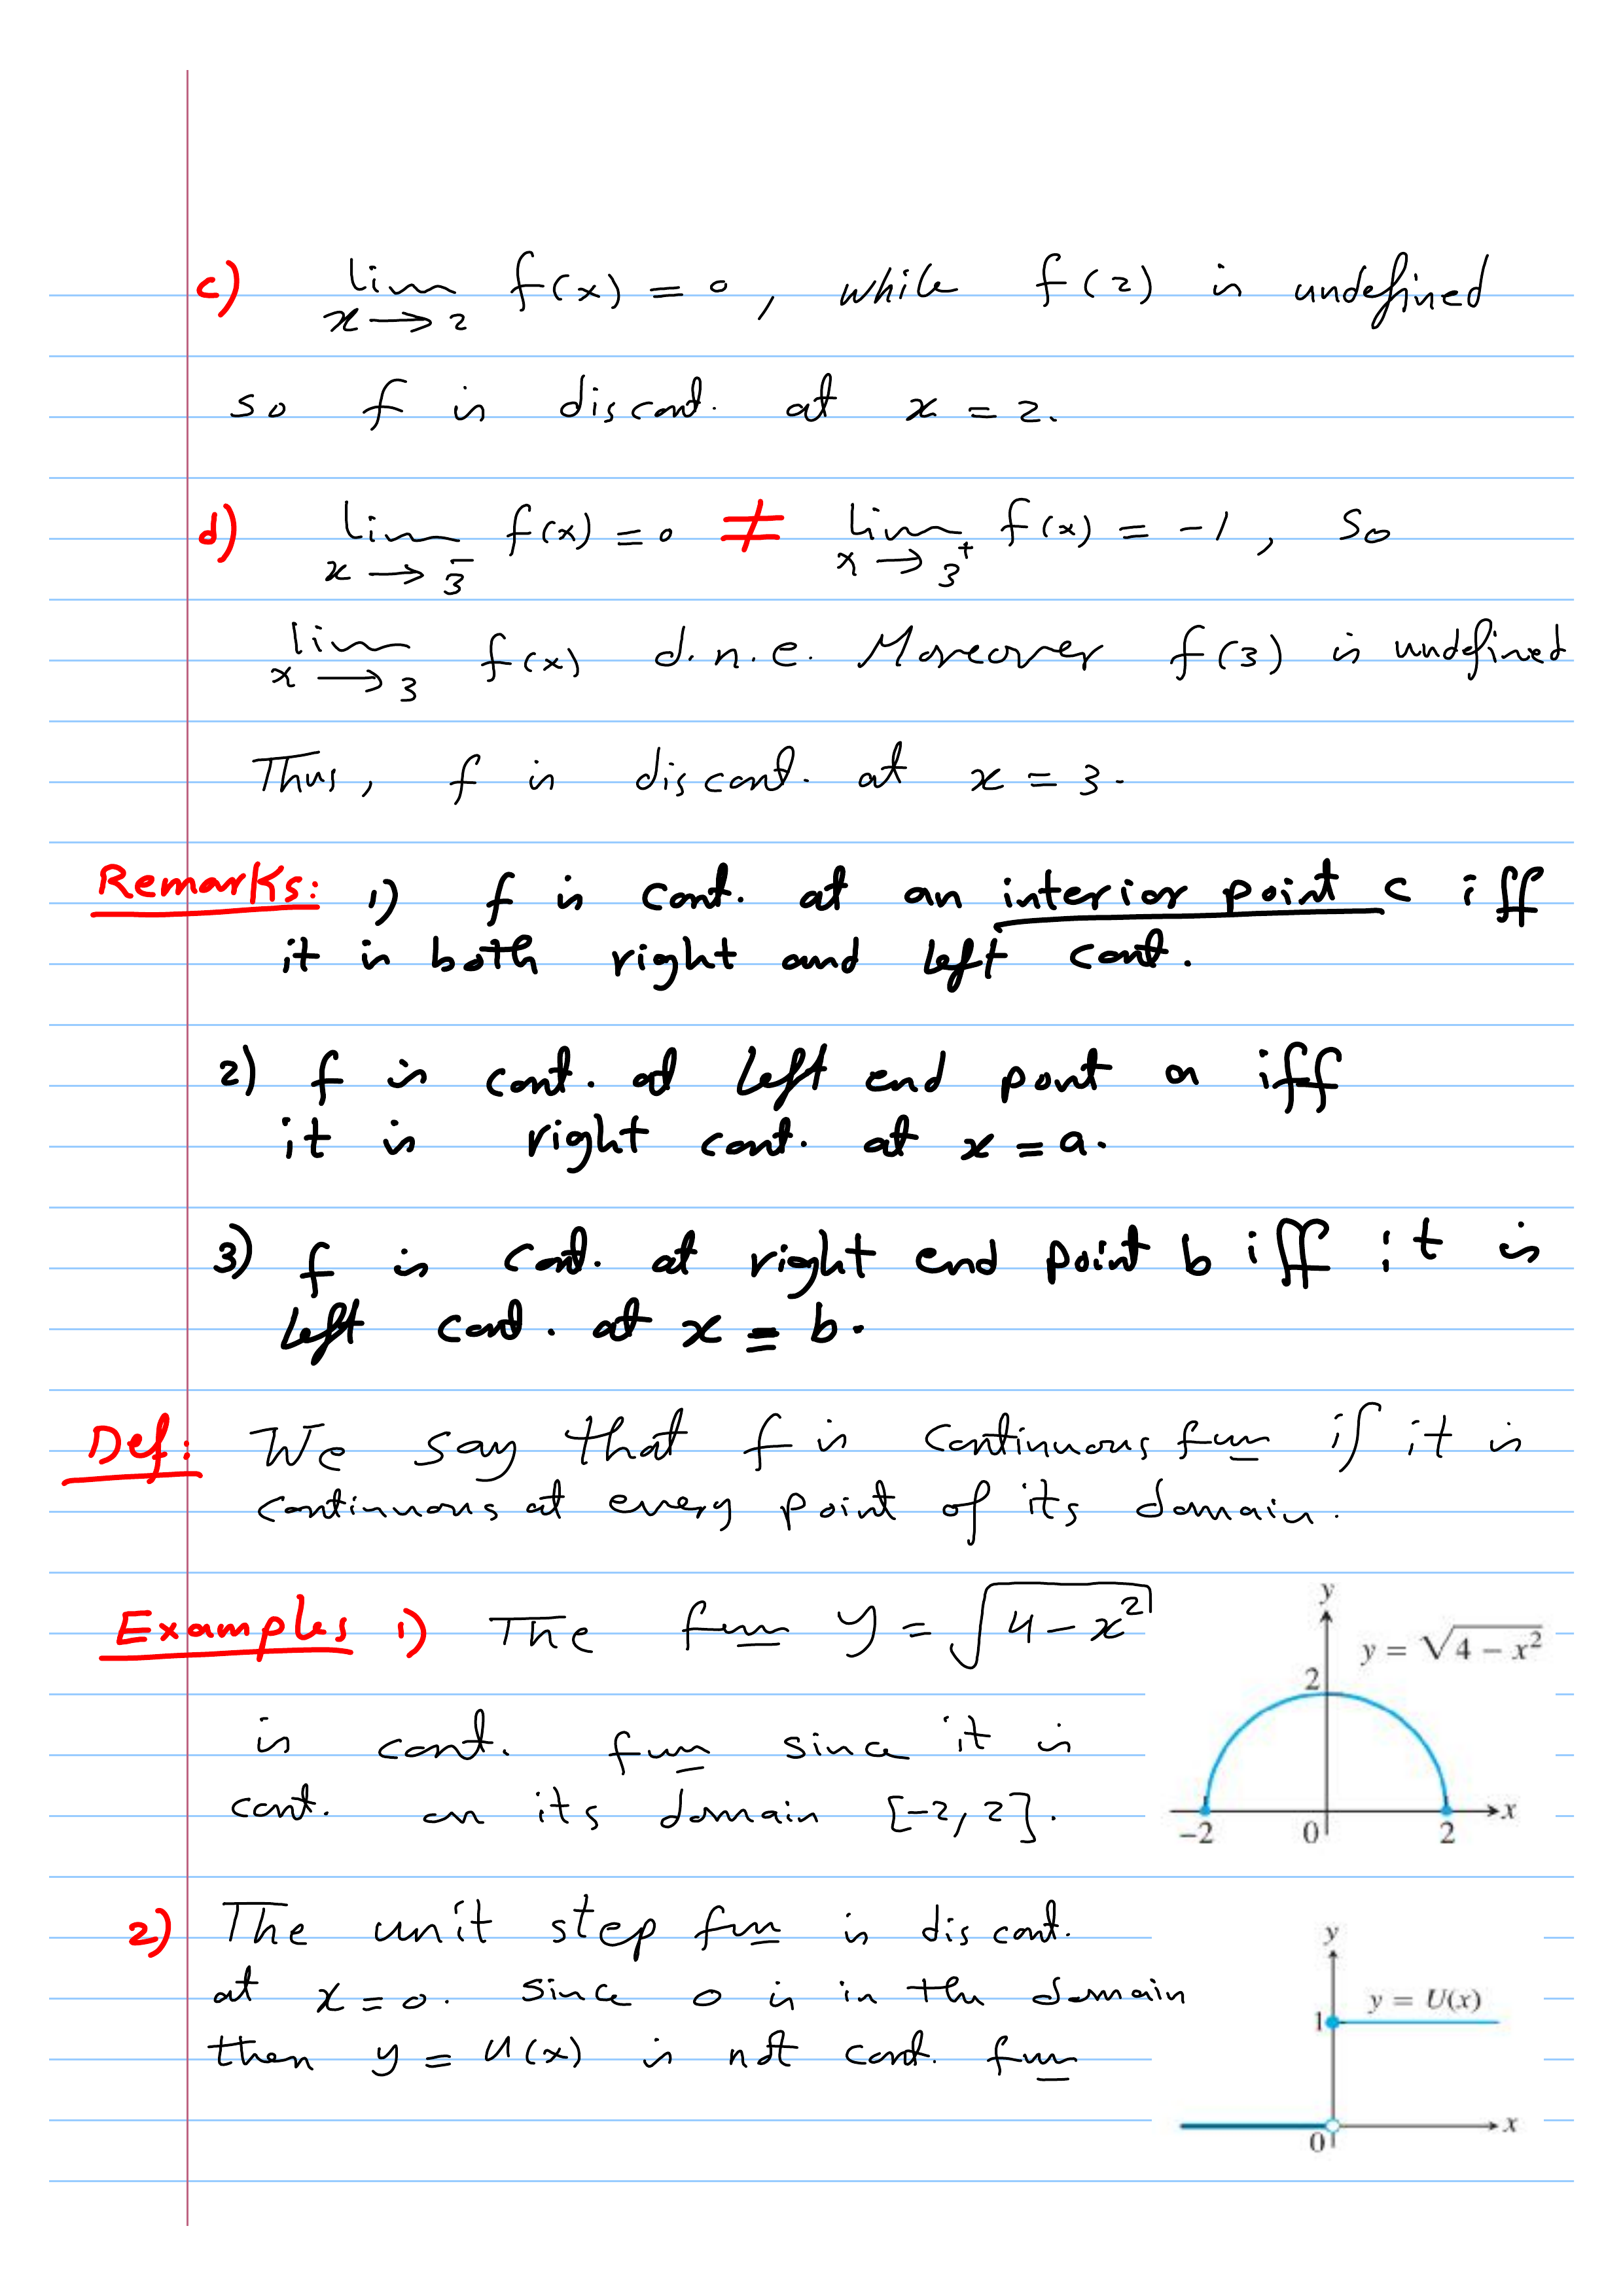 c) lim x→2 f(x) = 0, while f(2) is undefined
so f is discont. at x = 2.
d) lim x→3⁻ f(x) = 0 ≠ lim x→3⁺ f(x) = -1, so
lim x→3 f(x) d.n.e. Moreover f(3) is undefined
Thus, f is discont. at x = 3.
Remarks: 1) f is cont. at an interior point c iff
it is both right and left cont.
2) f is cont. at left end pont a iff
it is right cont. at x = a.
3) f is cont. at right end point b iff it is
left cont. at x = b.
Def: We say that f is continuous fun if it is
continuous at every point of its domain.
Examples 1) The fun y = √(4 - x²)
is cont. fun since it is
cont. on its domain [-2, 2].
y
y = √(4 - x²)
2
-2 0 2 x
2) The unit step fun is discont.
at x = 0. since 0 is in the domain
then y = U(x) is not cont. fun
y
y = U(x)
1
0 x